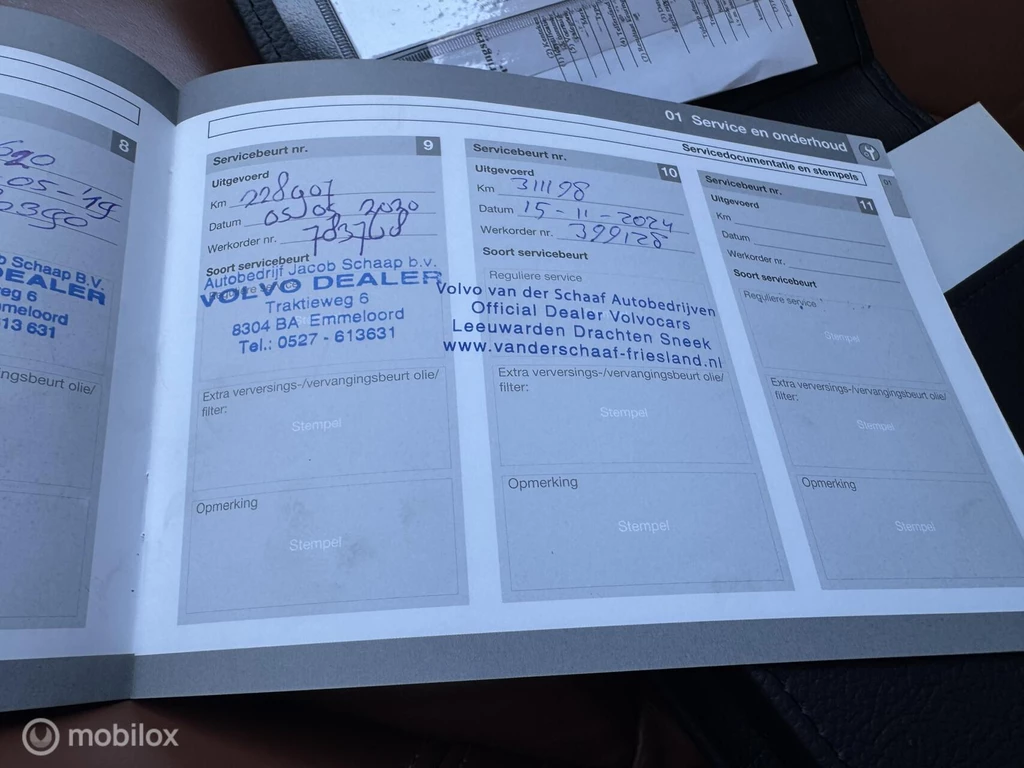 01 Service en onderhoud
Servicedocumentatie en stempels
01
8
05-'19
Schaap B.V.
DEALER
6
613 631
olie/
Servicebeurt nr. 9
Uitgevoerd
Km 228907
Datum 05 05 2020
Werkorder nr. 783768
Soort servicebeurt
Autobedrijf Jacob Schaap b.v.
VOLVO DEALER
Traktieweg 6
8304 BA Emmeloord
Tel.: 0527 - 613631
Extra verversings-/vervangingsbeurt olie/
filter:
Stempel
Opmerking
Stempel
Servicebeurt nr. 10
Uitgevoerd
Km 311198
Datum 15-11-2024
Werkorder nr. 399128
Soort servicebeurt
Reguliere service
Volvo van der Schaaf Autobedrijven
Official Dealer Volvocars
Leeuwarden Drachten Sneek
www.vanderschaaf-friesland.nl
Extra verversings-/vervangingsbeurt olie/
filter:
Stempel
Opmerking
Stempel
Servicebeurt nr. 11
Uitgevoerd
Km
Datum
Werkorder nr.
Soort servicebeurt
Reguliere service
Stempel
Extra verversings-/vervangingsbeurt olie/
filter:
Stempel
Opmerking
Stempel
mobilox